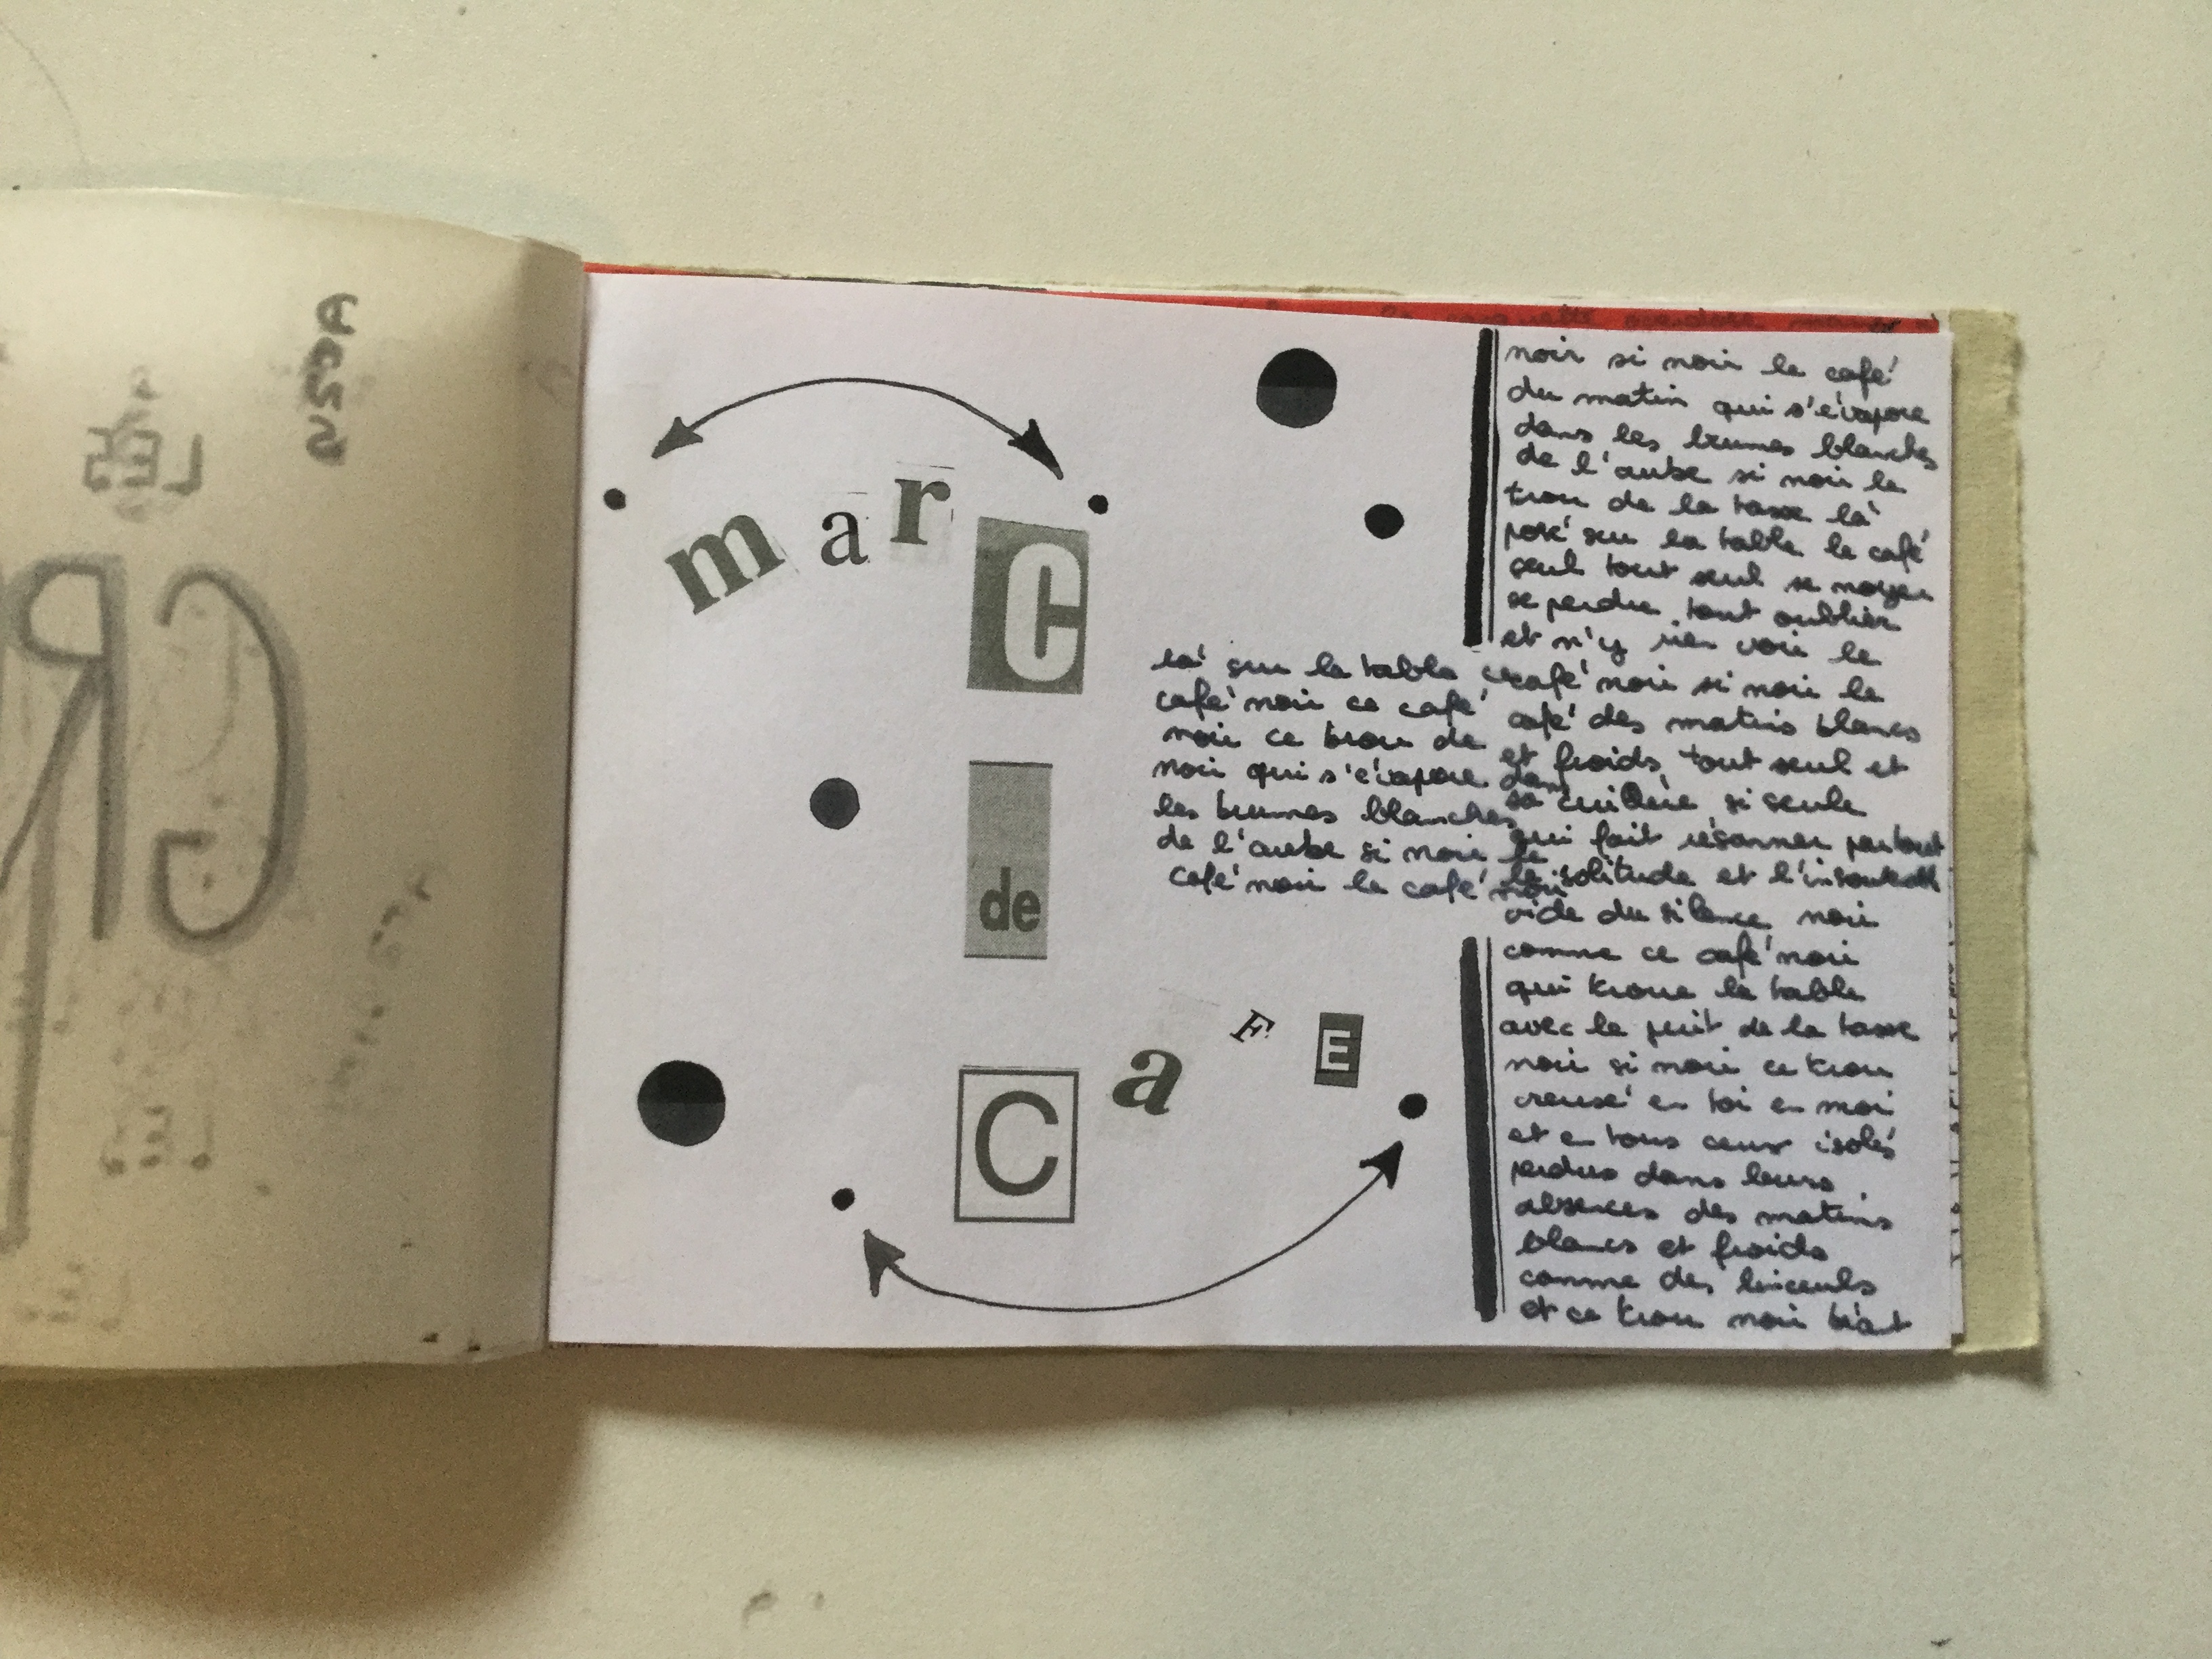 marC
de
CaFE
là sur la table ce
café noir ce café
noir ce trou de
noir qui s'évapore dans
les brumes blanches
de l'aube si noir le
café noir le café noir
noir si noir le café
du matin qui s'évapore
dans les brumes blanches
de l'aube si noir le
trou de la tasse là
posé sur la table le café
seul tout seul se noyer
se perdre tout oublier
et n'y rien voir le
café noir si noir le
café des matins blancs
et froids tout seul et
sa cuillère si seule
qui fait résonner partout
la solitude et
vide du silence noir
comme ce café noir
qui troue la table
avec le puit de la tasse
noir si noir ce trou
creusé en toi en moi
et en tous ceux isolés
perdus dans leurs
absences des matins
blancs et froids
comme des linceuls
et ce trou noir béant
LES